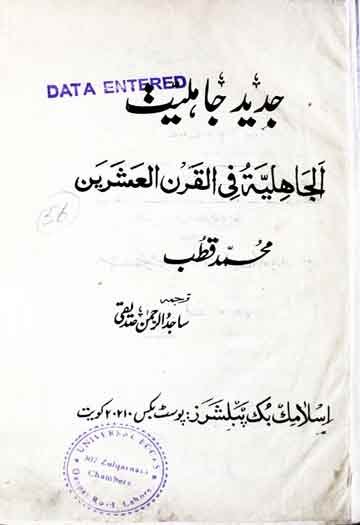 DATA ENTERED
جدید جاہلیت
اَلجَاهِليَّةُ فِي القَرْنِ العِشَرِين
محمّد قطب
ترجمہ
ساجد الرحمن صدیقی
اسلامک بک پبلشرز: پوسٹ بکس ۲۰۲۱۰ کویت
UNIVERSAL BOOKS
307 Zulqarnain
Chambers
Ganpat Road, Lahore
56